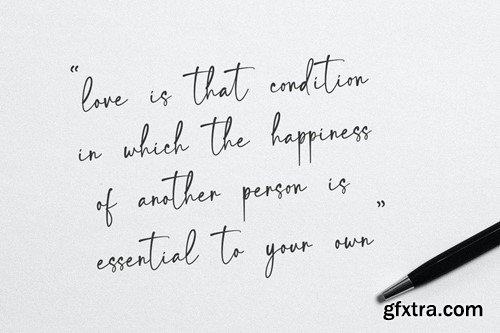 “love is that condition
in which the happiness
of another person is
essential to your own”
gfxtra.com